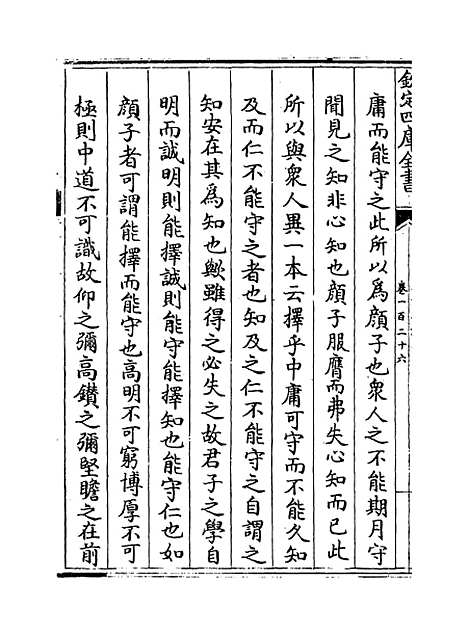 欽定四庫全書
卷一百二十六
庸而能守之此所以為顔子也衆人之不能期月守
聞見之知非心知也顔子服膺而弗失心知而已此
所以與衆人異一本云擇乎中庸可守而不能久知
及而仁不能守之者也知及之仁不能守之自謂之
知安在其為知也歟雖得之必失之故君子之學自
明而誠明則能擇誠則能守能擇知也能守仁也如
顔子者可謂能擇而能守也高明不可窮博厚不可
極則中道不可識故仰之彌高鑚之彌堅瞻之在前